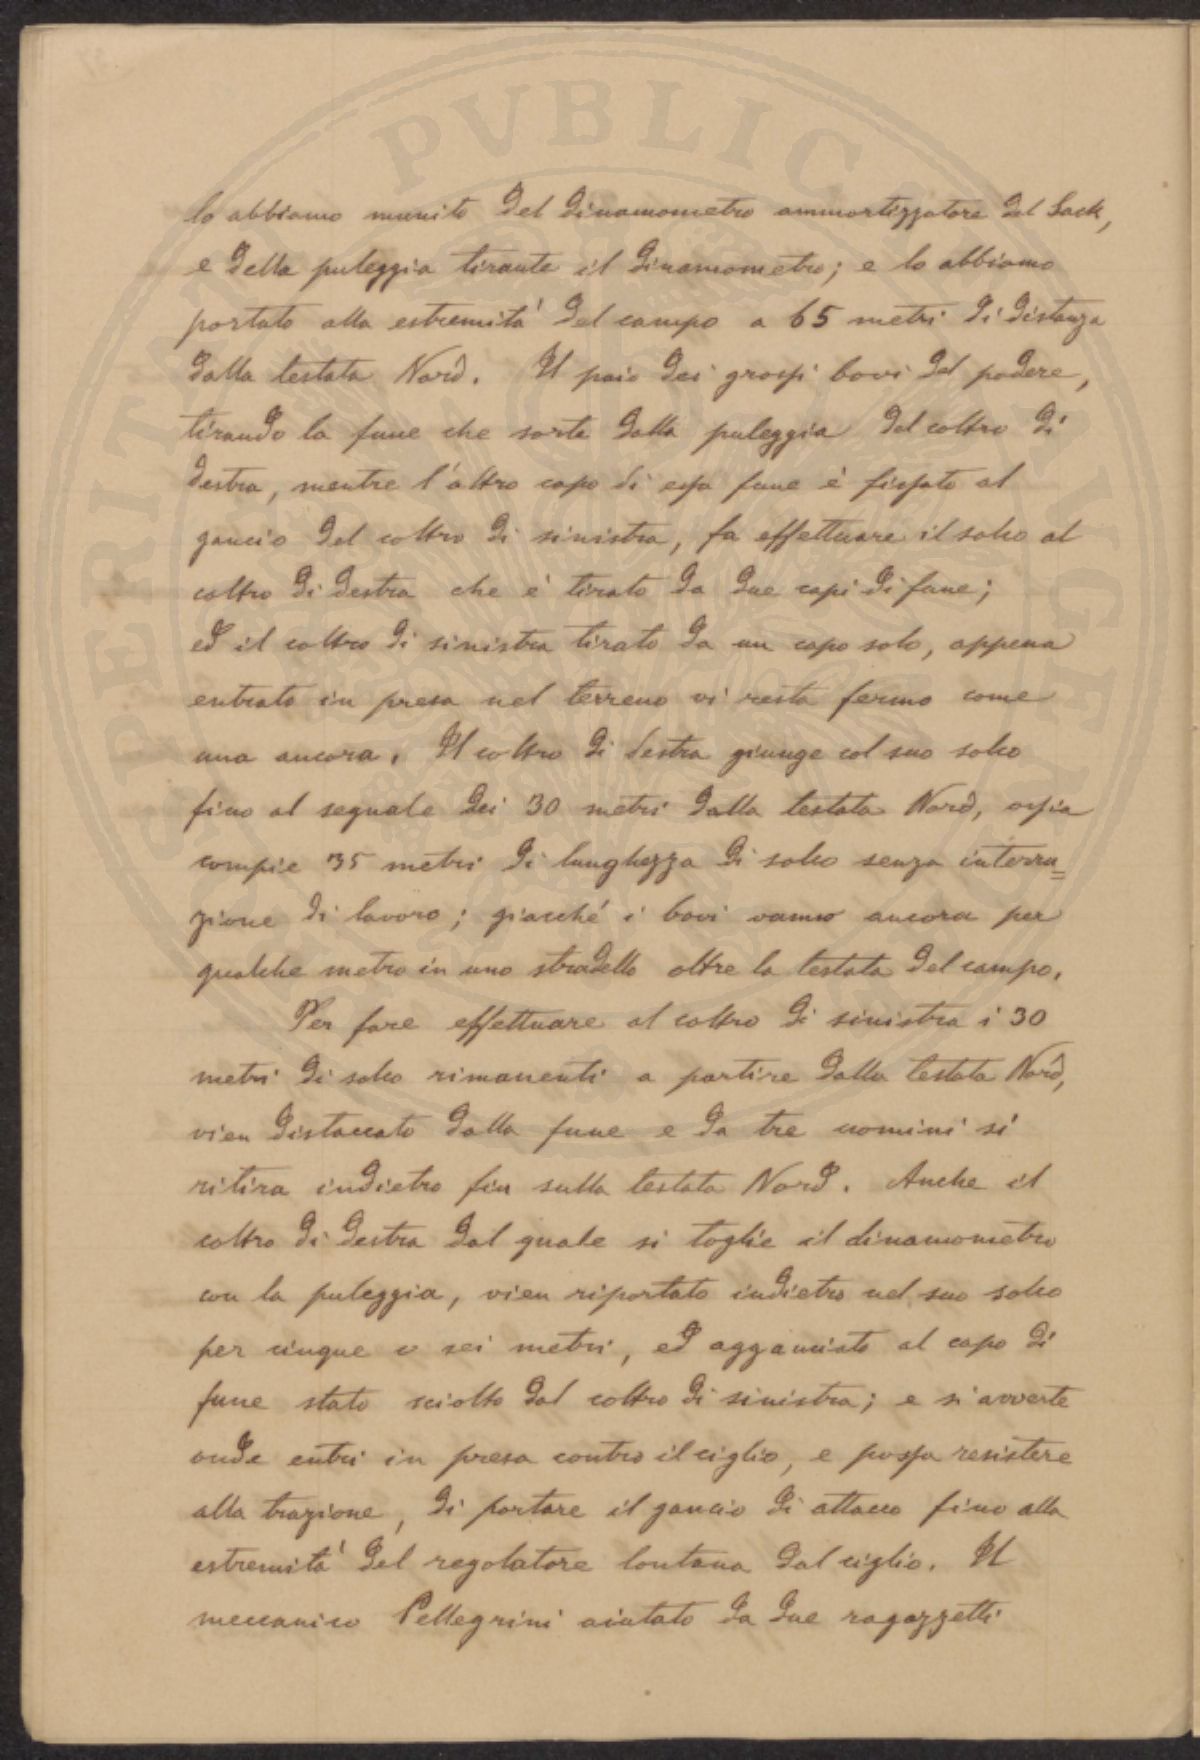 lo abbiamo munito del dinamometro ammortizzatore del Sack,
e della puleggia tirante il dinamometro; e lo abbiamo
portato alla estremità del campo a 65 metri di distanza
dalla testata Nord. Il paio dei grossi bovi del podere,
tirando la fune che sorte dalla puleggia del coltro di
destra, mentre l'altro capo di essa fune è fissato al
gancio del coltro di sinistra, fa effettuare il solco al
coltro di destra che è tirato da due capi di fune;
ed il coltro di sinistra tirato da un capo solo, appena
entrato in presa nel terreno vi resta fermo come
una ancora. Il coltro di destra giunge col suo solco
fino al segnale dei 30 metri dalla testata Nord, ossia
compie 35 metri di lunghezza di solco senza interru=
zione di lavoro; giacché i bovi vanno ancora per
qualche metro in uno stradello oltre la testata del campo.
Per fare effettuare al coltro di sinistra i 30
metri di solco rimanenti a partire dalla testata Nord,
vien distaccato dalla fune e da tre uomini si
ritira indietro fin sulla testata Nord. Anche il
coltro di destra dal quale si toglie il dinamometro
con la puleggia, vien riportato indietro nel suo solco
per cinque o sei metri, ed agganciato al capo di
fune stato sciolto dal coltro di sinistra; e si avverte
onde entri in presa contro il ciglio, e possa resistere
alla trazione, di portare il gancio di attacco fino alla
estremità del regolatore lontana dal ciglio. Il
meccanico Pellegrini aiutato da due ragazzetti
PVBLICAE
VERITAS